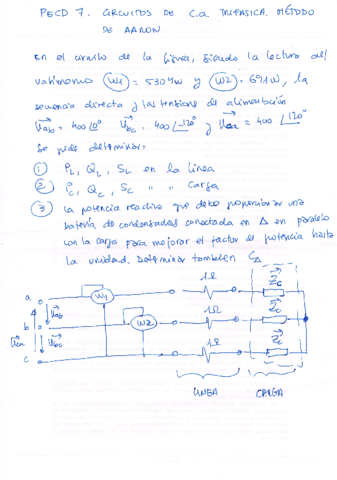 PECD 7. CIRCUITOS DE C.a TRIFASICA. MÉTODO
DE AARON
En el circuito de la figura, siendo la lectura del
vatímetro W1 = 5304w y W2 = 691w, la
secuencia directa y las tensiones de alimentación
Uab = 400 |0° Ubc = 400 |-120° y Uca = 400 |120°
Se pide determinar:
1 PL, QL, SL en la línea
2 Pc, Qc, Sc " " Carga
3 La potencia reactiva que debe proporcionar una
batería de condensadores conectada en Δ en paralelo
con la carga para mejorar el factor de potencia hasta
la unidad. Determinar también CΔ
a W1 1Ω Zc
Uab
b W2 1Ω Zc
Uca Ubc
c 1Ω Zc
LINEA CARGA